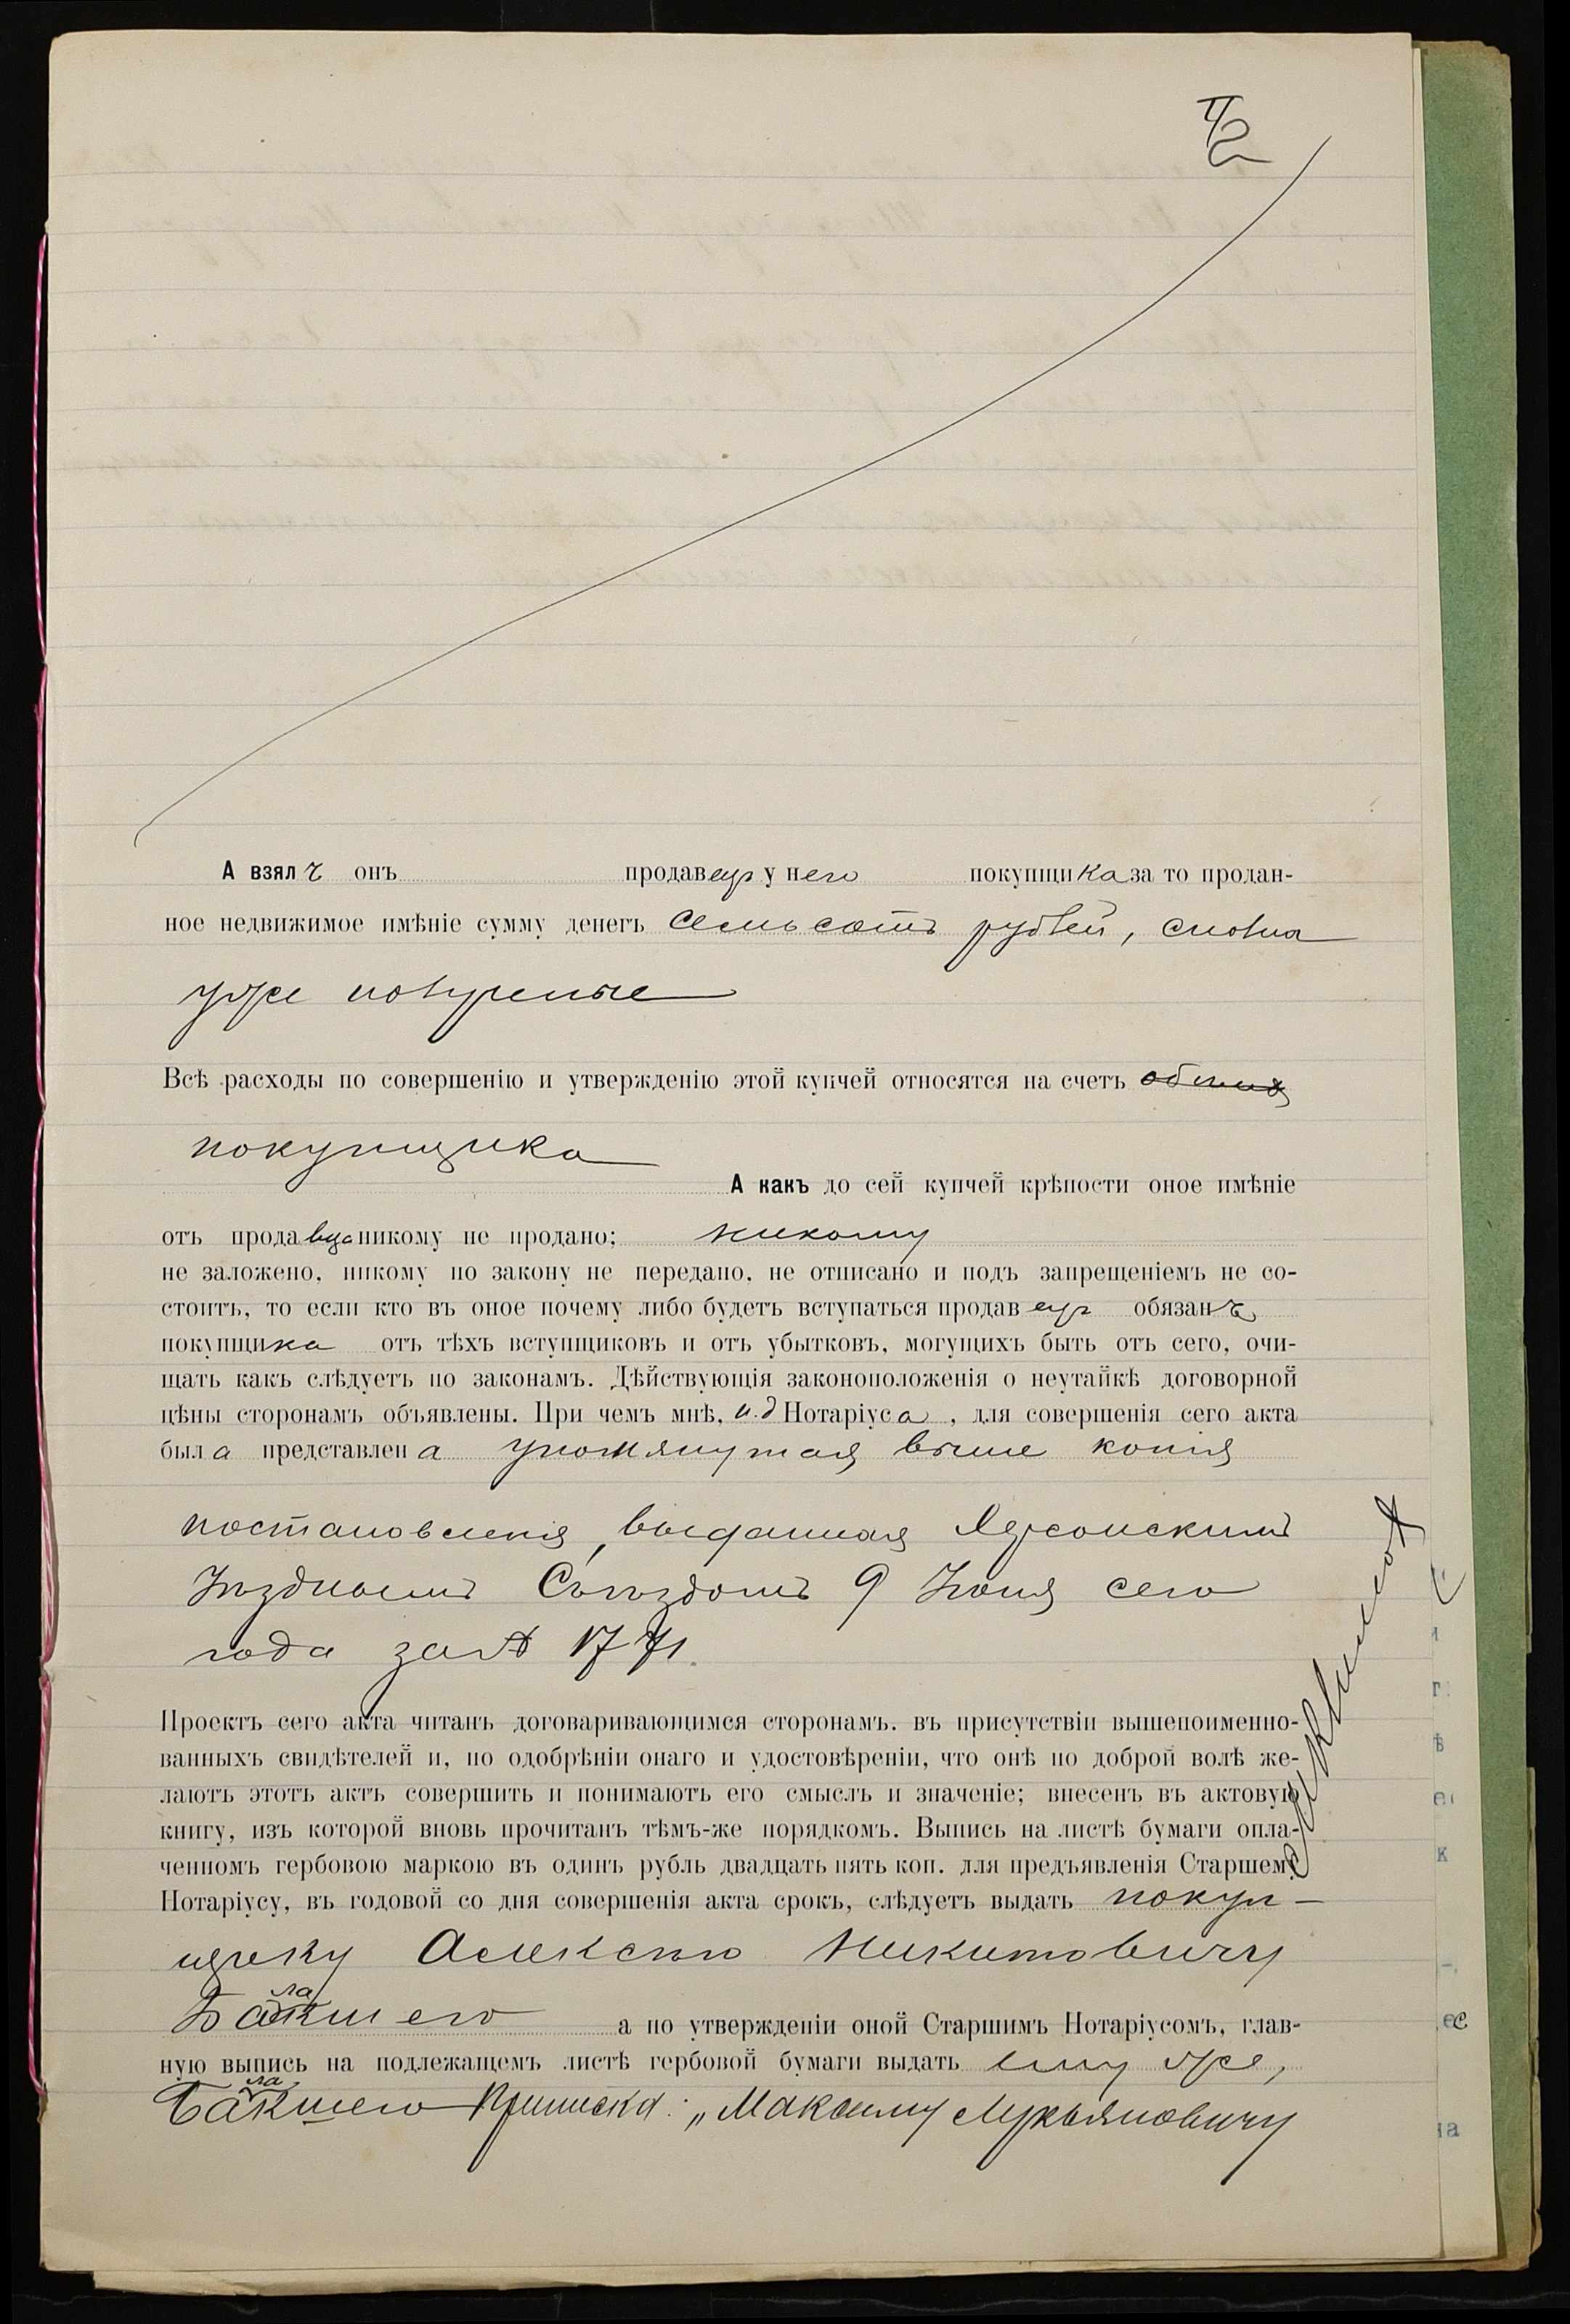 А взялъ онъ продавецъ у него покупщика за то продан-
ное недвижимое имѣніе сумму денегъ семьсотъ рублей, сполна
уже полученые
Всѣ расходы по совершенію и утвержденію этой купчей относятся на счетъ
покупщика
А какъ до сей купчей крѣпости оное имѣніе
отъ продавца никому не продано; никому
не заложено, никому по закону не передано, не отписано и подъ запрещеніемъ не со-
стоитъ, то если кто въ оное почему либо будетъ вступаться продавецъ обязанъ
покупщика отъ тѣхъ вступщиковъ и отъ убытковъ, могущихъ быть отъ сего, очи-
щать какъ слѣдуетъ по законамъ. Дѣйствующія законоположенія о неутайкѣ договорной
цѣны сторонамъ объявлены. При чемъ мнѣ, и.д Нотаріуса, для совершенія сего акта
была представлена упомянутая выше копія
постановленія, выданная Херсонскимъ
Уѣзднымъ Съѣздомъ 9 Іюня сего
года за № 1771.
Проектъ сего акта читанъ договаривающимся сторонамъ. въ присутствіи вышепоименно-
ванныхъ свидѣтелей и, по одобрѣніи онаго и удостовѣреніи, что онѣ по доброй волѣ же-
лаютъ этотъ актъ совершить и понимаютъ его смыслъ и значеніе; внесенъ въ актовую
книгу, изъ которой вновь прочитанъ тѣмъ-же порядкомъ. Выпись на листѣ бумаги опла-
ченномъ гербовою маркою въ одинъ рубль двадцать пять коп. для предъявленія Старшему
Нотаріусу, въ годовой со дня совершенія акта срокъ, слѣдуетъ выдать покуп-
щику Алексѣю Никитовичу
Балакшего а по утвержденіи оной Старшимъ Нотаріусомъ, глав-
ную выпись на подлежащемъ листѣ гербовой бумаги выдать ему же,
Балакшего Приписка: „Максиму Лукьяновичу